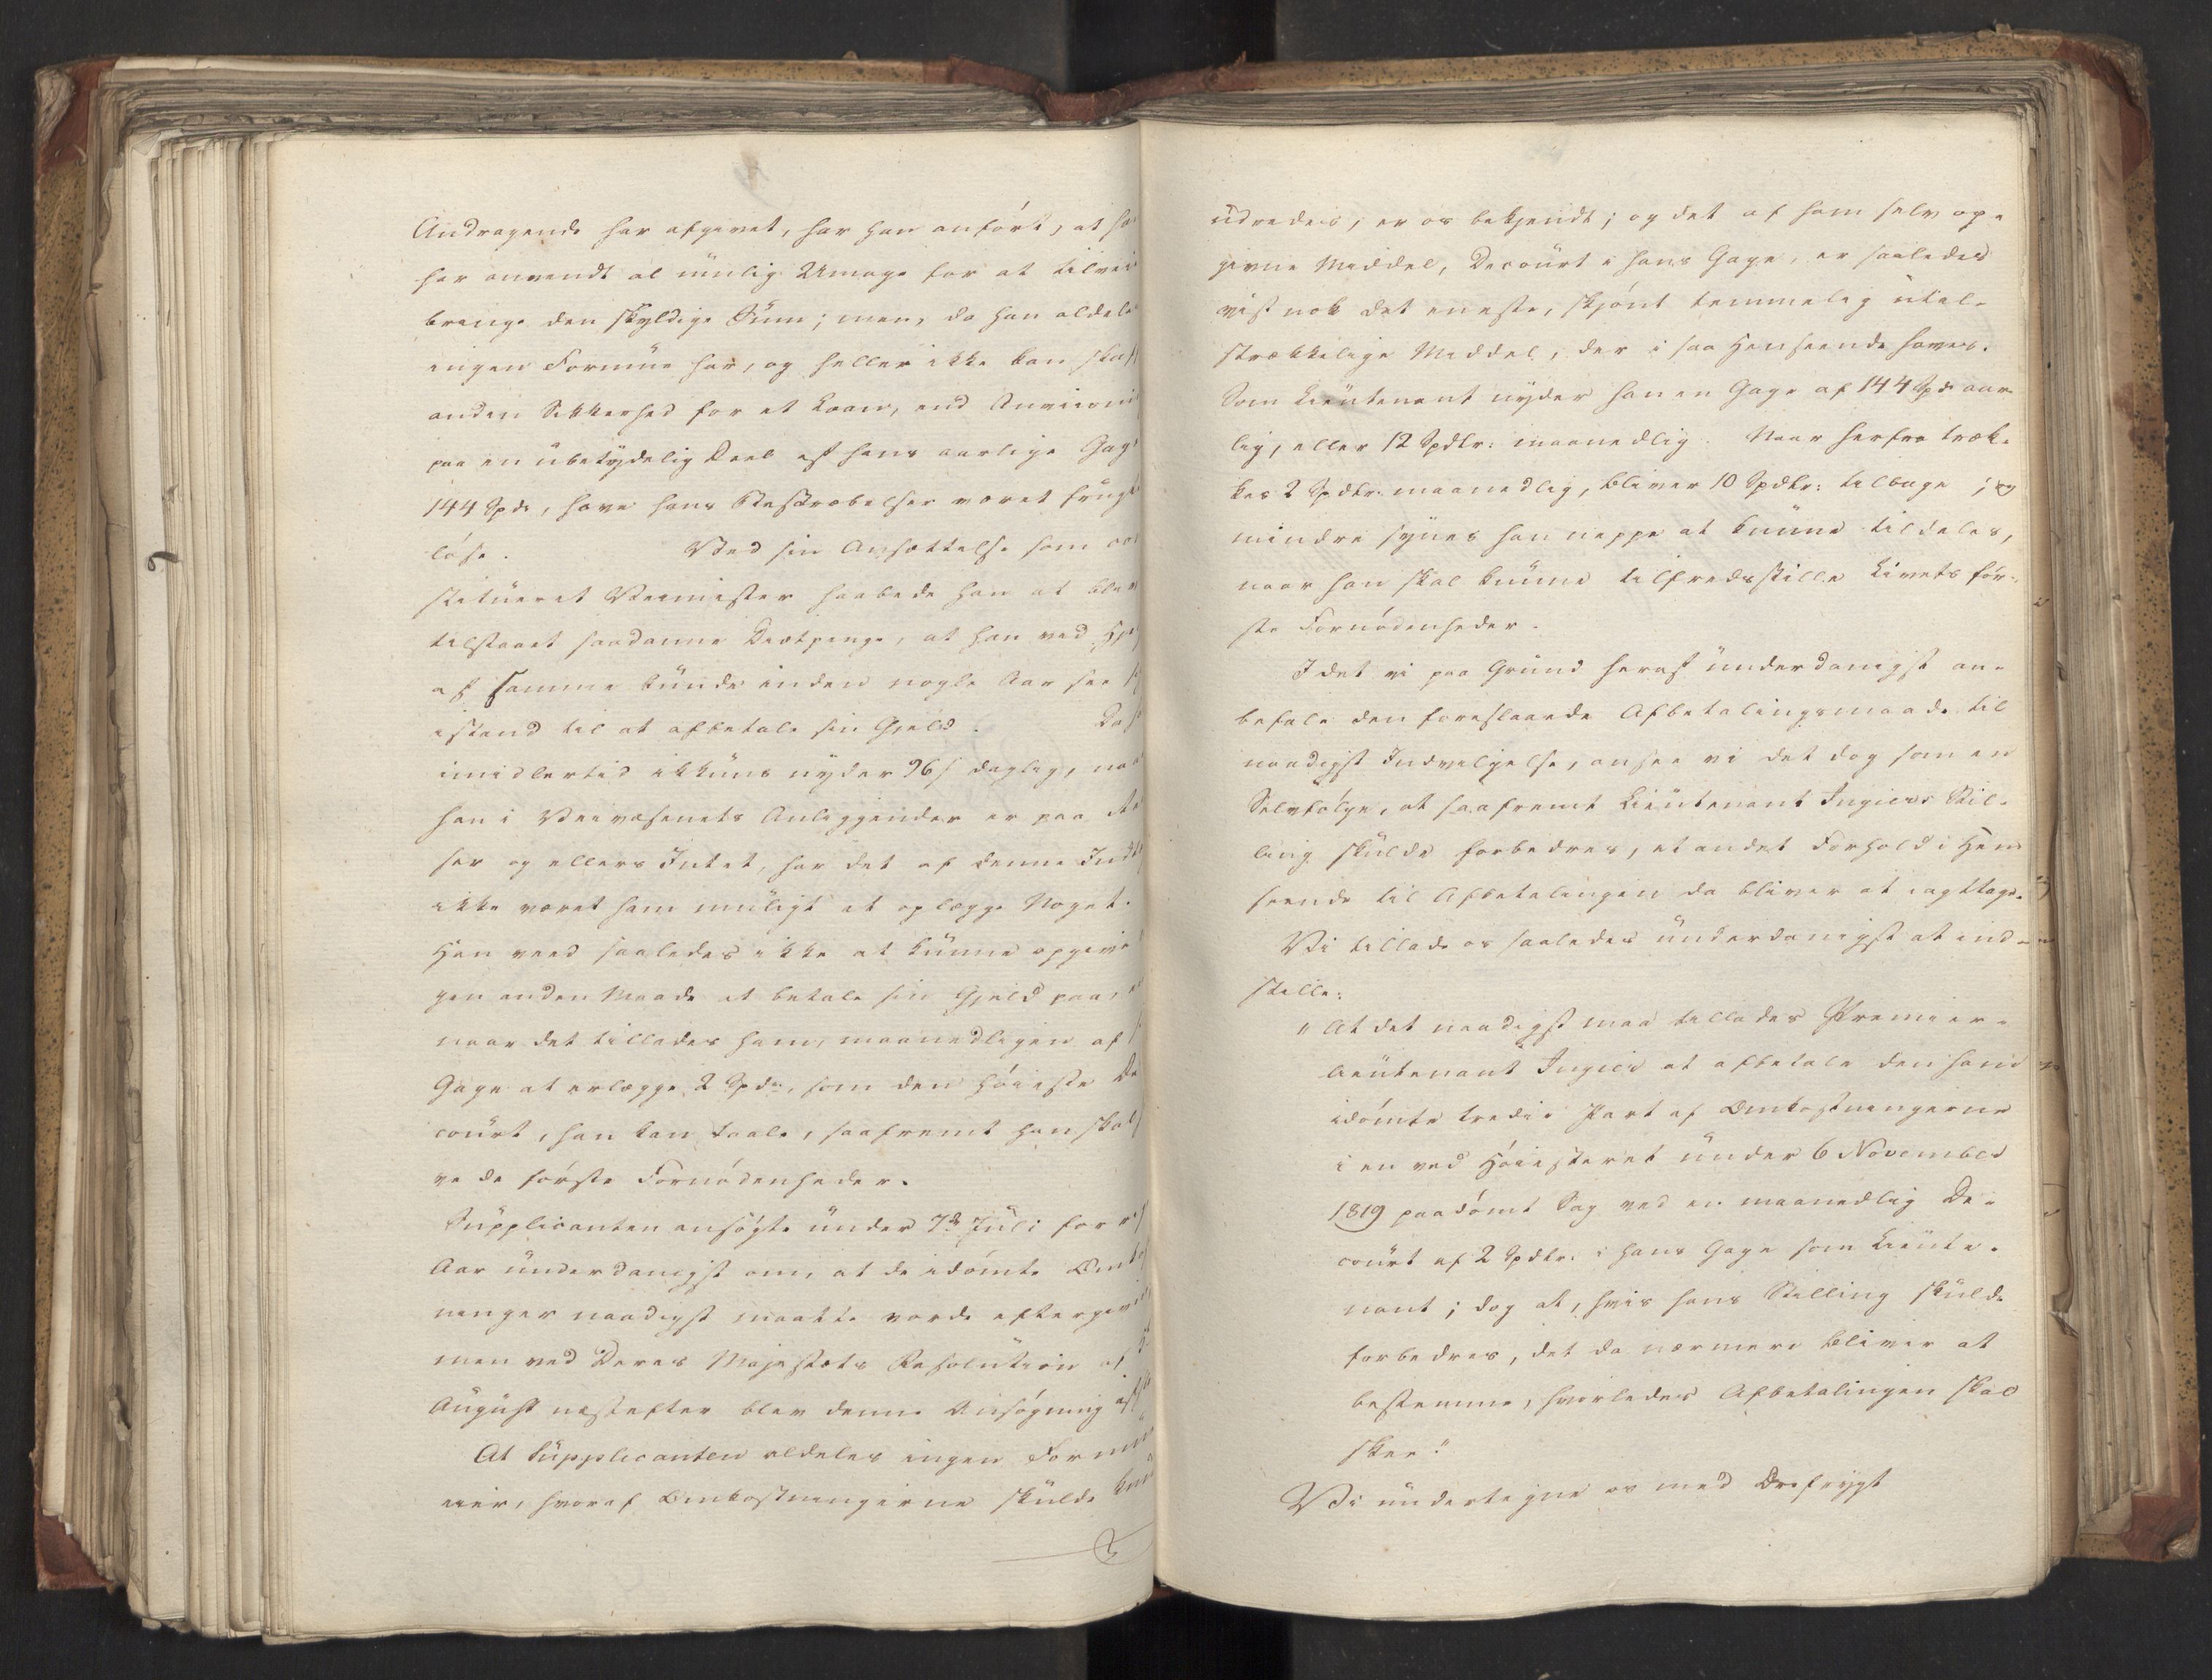 Andragende har afgivet, har han anført, at ha
har anvendt al mulig Umage for at tilvei
bringe den skyldige Sum; men, da han aldele
ingen Formue har, og heller ikke kan skaf
anden Sikkerhed for et Laan, end Anviisni
paa en ubetydelig Deel af hans aarlige Gag
144 Spd, have hans Bestræbelser været frugt
løse. Ved sin Ansættelse som con
stitueret Veimester haabede han at blev
tilstaaet saadanne Diætpenge, at han ved Hje
af samme kunde inden nogle Aar see si
istand til at afbetale sin Gjeld. Da h
imidlertid ikkuns nyder 96 s daglig, naa
han i Veivæsenets Anliggender er paa Re
ser og ellers Intet, har det af denne Indt
ikke været ham muligt at oplægge Noget.
Han veed saaledes ikke at kunne opgive
gen anden Maade at betale sin Gjeld paa,
naar det tillades ham, maanedligen af
Gage at erlægge 2 Spdr, som den høieste De
court, han kan taale, saafremt han skal
ve de første Fornødenheder.
Supplicanten ansøgte under 7de Juli forri
Aar underdanigst om, at de idømte Omkos
ninger naadigst maatte vorde eftergivn
men ved Deres Majestæts Resolution af
August næstefter blev denne Ansøgning
At Supplicanten aldeles ingen Formu
eier, hvoraf Omkostningerne skulde kun
udredes, er os bekjendt; og det af ham selv op-
givne Middel, Decourt i hans Gage, er saaledes
vist nok det eneste, skjønt temmelig util-
strækkelige Middel, der i saa Henseende haves.
Som Lieutenant nyder han en Gage af 144 Spd aar-
lig, eller 12 Spdlr: maanedlig. Naar herfra træk-
kes 2 Spdlr: maanedlig, bliver 10 Spdlr: tilbage; og
mindre synes han neppe at kunne tildeles,
naar han skal kunne tilfredsstille Livets før-
ste Fornødenheder.
Idet vi paa Grund heraf underdanigst an-
befale den foreslaaede Afbetalingsmaade til
naadigst Indvilgelse, ansee vi det dog som en
Selvfølge, at saafremt Lieutenant Ingiers Stil-
ling skulde forbedres, et andet Forhold i Hen-
seende til Afbetalingen da bliver at iagttage.
Vi tillade os saaledes underdanigst at ind-
stille:
"At det naadigst maa tillades Premier-
lieutenant Ingier at afbetale den ham
idømte tredie Part af Omkostningerne
i en ved Høiesteret under 6 November
1819 paadømt Sag ved en maanedlig De-
court af 2 Spdlr. i hans Gage som Lieute-
nant; dog at, hvis hans Stilling skulde
forbedres, det da nærmere bliver at
bestemme, hvorledes Afbetalingen skal
skee."
Vi undertegne os med Ærefrygt